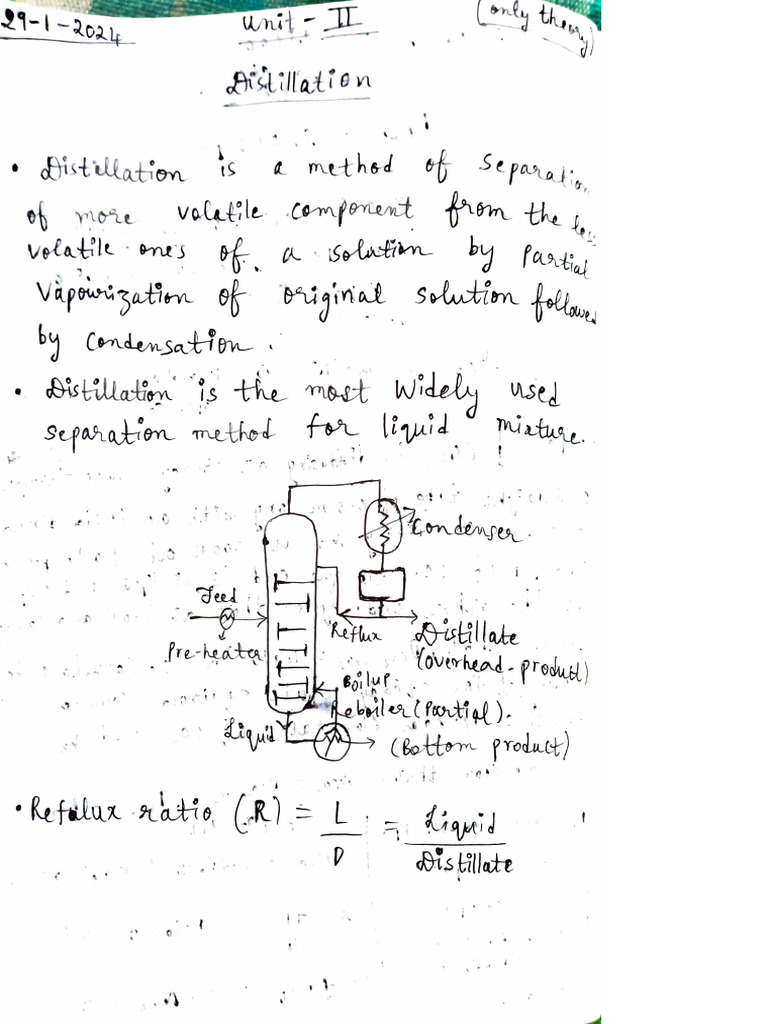 29-1-2024
Unit - II
(only theory)
Distillation
• Distillation is a method of separation
of more volatile component from the less
volatile ones of a solution by partial
vapourization of original solution followed
by condensation.
• Distillation is the most widely used
separation method for liquid mixture.
Condenser
Feed
Reflux
Distillate
Pre-heater
(overhead-product)
Boilup
Reboiler (partial).
Liquid
(Bottom product)
• Refulux ratio (R) = L/D = Liquid/Distillate